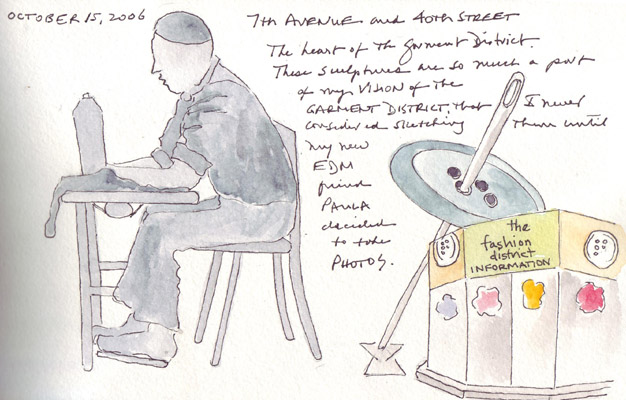 OCTOBER 15, 2006
7TH AVENUE and 40TH STREET
The heart of The garment District.
These sculptures are so much a part
of my VISION of the
GARMENT DISTRICT, that I never
considered sketching Them until
my new
EDM
friend
PAULA
decided
to take
PHOTOS.
the
fashion
district
INFORMATION